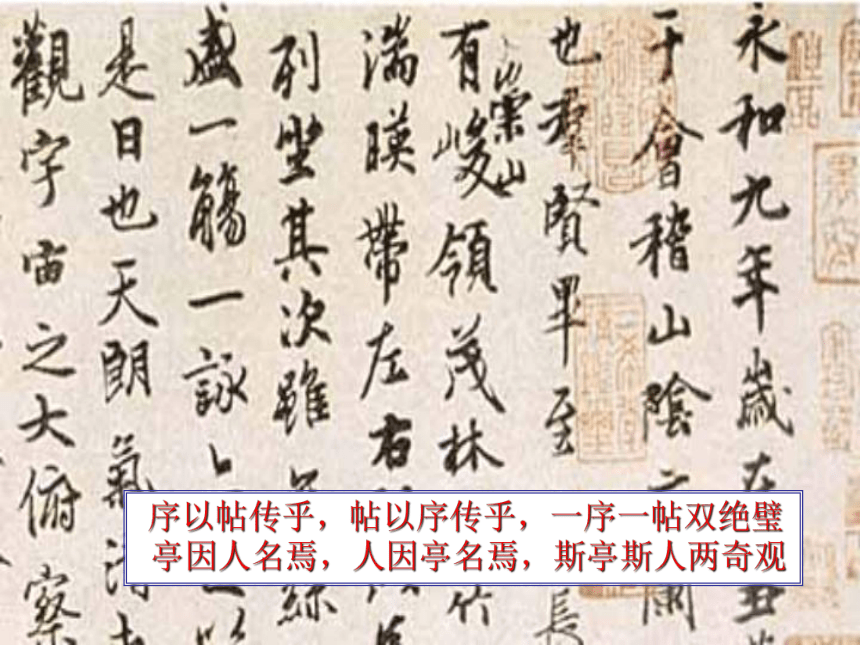 永和九年歲在丑
于會稽山陰之蘭
也羣賢畢至長
有崇山峻領茂林竹
湍暎帶左右
列坐其次雖絲
盛一觴一詠
是日也天朗氣清
觀宇宙之大俯察
序以帖传乎，帖以序传乎，一序一帖双绝璧
亭因人名焉，人因亭名焉，斯亭斯人两奇观